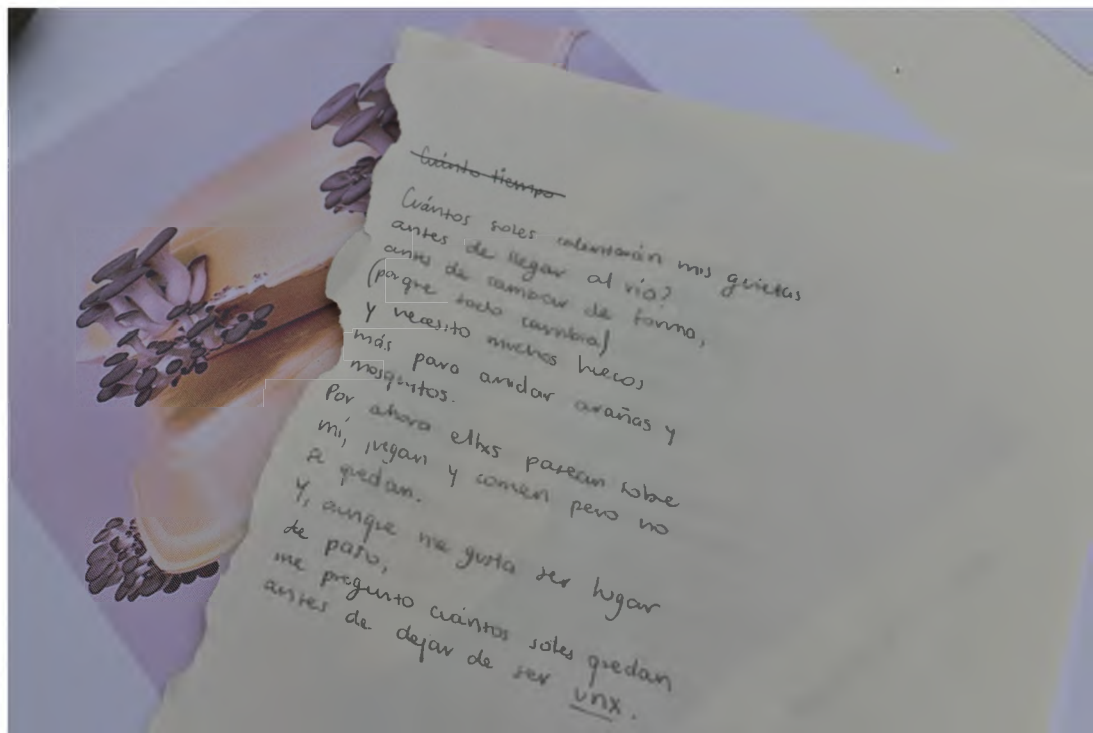 Cuánto tiempo
Cuántos soles calentarán mis grietas
antes de llegar al río?
antes de cambiar de forma,
(porque todo cambia)
Y necesito muchos huecos
más para anidar arañas y
mosquitos.
Por ahora ellxs pasean sobre
mí, juegan y comen pero no
se quedan.
Y, aunque me gusta ser lugar
de paso,
me pregunto cuántos soles quedan
antes de dejar de ser unx.